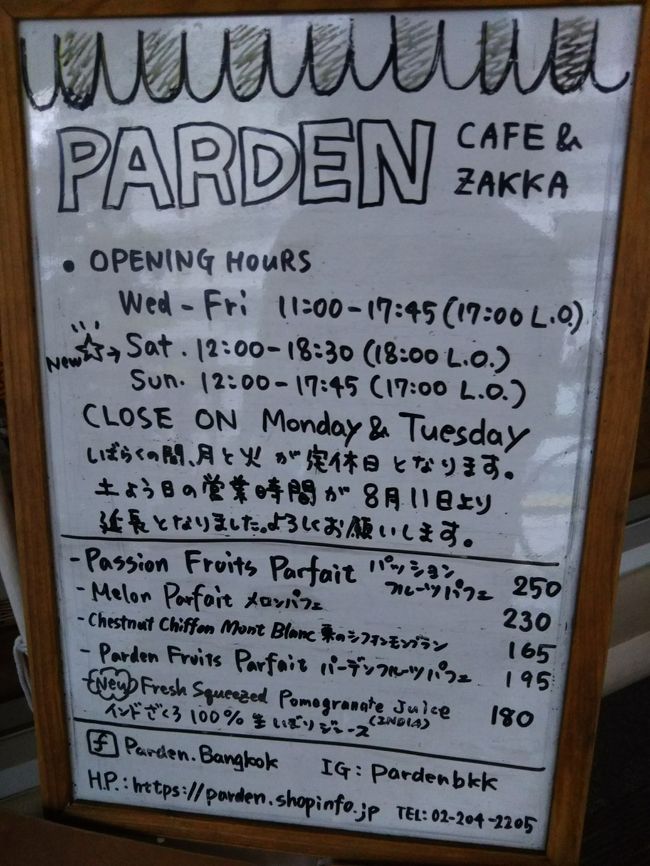 PARDEN CAFE & ZAKKA
• OPENING HOURS
Wed - Fri 11:00-17:45 (17:00 L.O.)
New ☆→ Sat. 12:00-18:30 (18:00 L.O.)
Sun. 12:00-17:45 (17:00 L.O.)
CLOSE ON Monday & Tuesday
しばらくの間、月と火が定休日となります。
土よう日の営業時間が8月11日より
延長となりました。よろしくお願いします。
- Passion Fruits Parfait パッションフルーツパフェ 250
- Melon Parfait メロンパフェ 230
- Chestnut Chiffon Mont Blanc 栗のシフォンモンブラン 165
- Parden Fruits Parfait パーデンフルーツパフェ 195
- New Fresh Squeezed Pomogranate Juice 180
インドざくろ100%生しぼりジュース (INDIA)
f Parden.Bangkok IG: pardenbkk
H.P.: https://parden.shopinfo.jp TEL: 02-204-2205